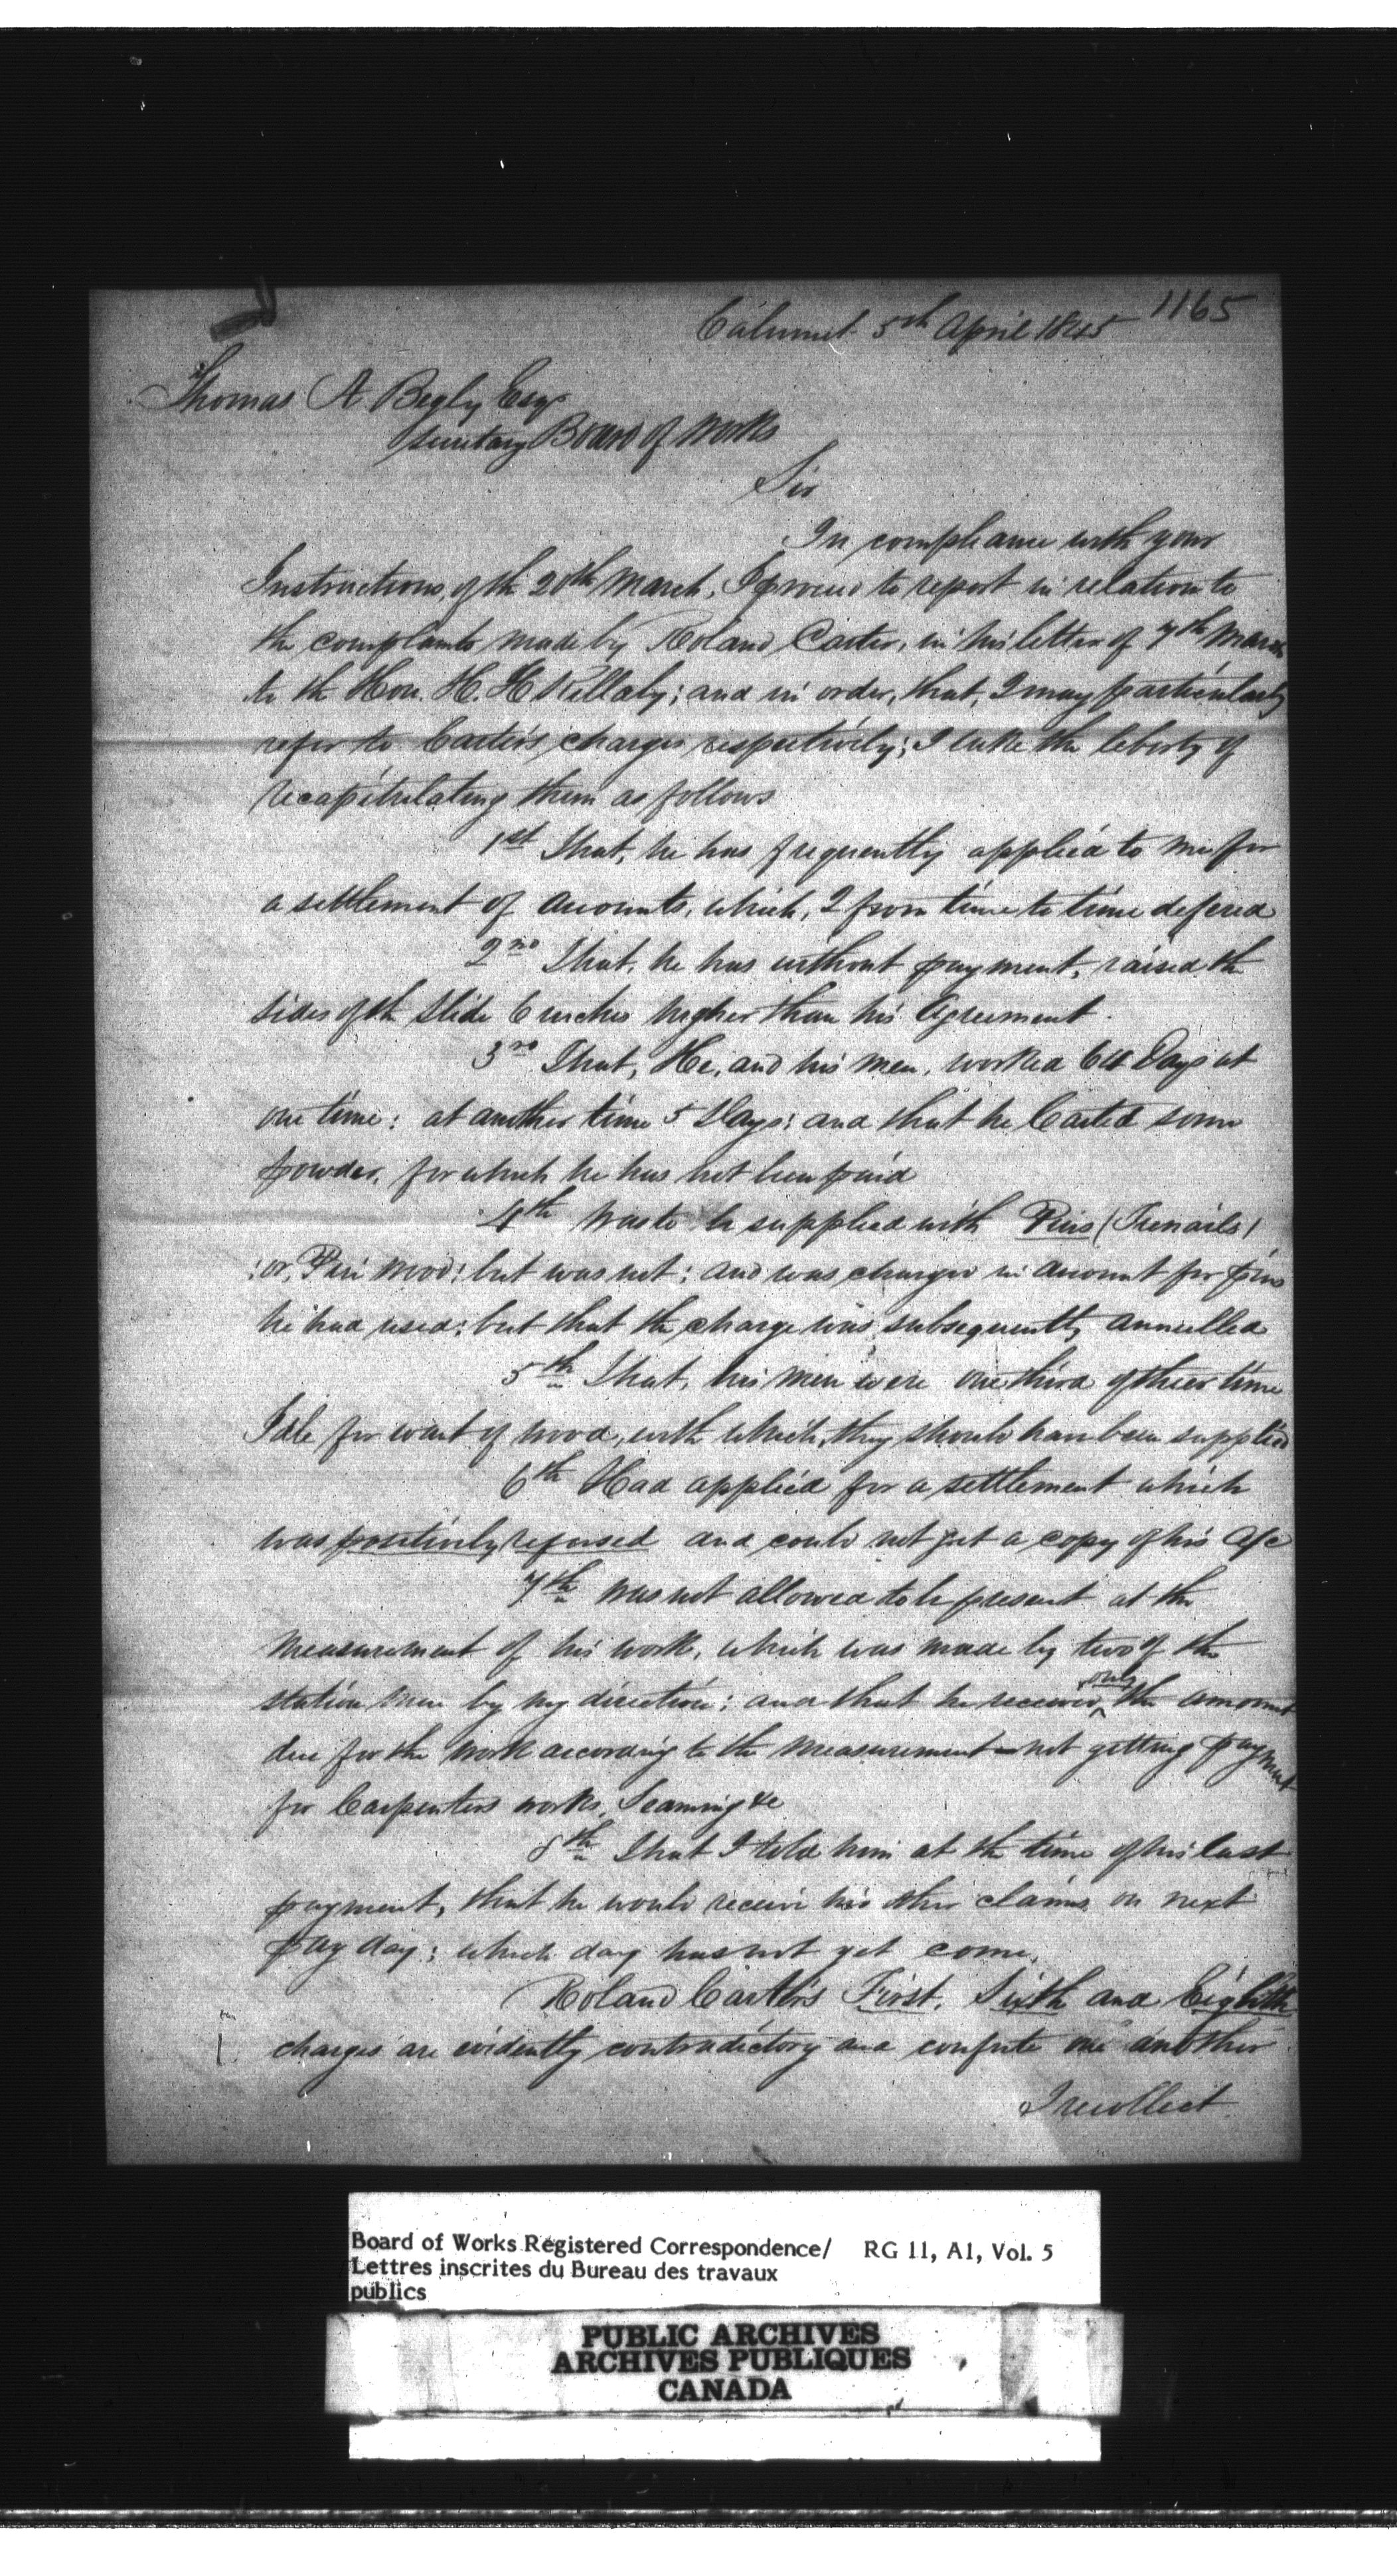 1165
Calumet 5th April 1845
Thomas A Begly Esqr
Secretary Board of Works
Sir
In compliance with your
Instructions, of the 28th March, I proceed to report in relation to
the complaints made by Roland Carter, in his letter of 7th March
to the Hon. H. H Killaly; and in order, that, I may particularly
refer to Carter's charges respectively; I take the liberty of
recapitulating them as follows
1st That, he has frequently applied to me for
a settlement of accounts, which, I from time to time defered
2nd That, he has without payment, raised the
sides of the Slide 6 inches higher than his Agreement.
3rd That, He, and his men, worked Days at
one time; at another time 5 Days; and that he Carted some
powder, for which he has not been paid
4th Was to be supplied with Pins (Trenails)
or, Pin wood; but was not; and was charged in account for pins
he had used; but that the charge was subsequently annulled
5th That, his men were one third of their time
Idle for want of wood, with which, they should have been supplied
6th Had applied for a settlement which
was positively refused and could not get a copy of his A/c
7th Was not allowed to be present at the
measurement of his work, which was made by two of the
station men by my direction; and that he received only the amount
due for the work according to the measurement - not getting payment
for Carpenters works, Seaming &c
8th That I told him at the time of his last
payment, that he would receive his other claims, on next
pay day; which day has not yet come.
Roland Carter's First, Sixth and Eighth
charges are evidently contradictory and confute one another
I recollect
Board of Works Registered Correspondence/ RG 11, A1, Vol. 5
Lettres inscrites du Bureau des travaux
publics
PUBLIC ARCHIVES
ARCHIVES PUBLIQUES
CANADA